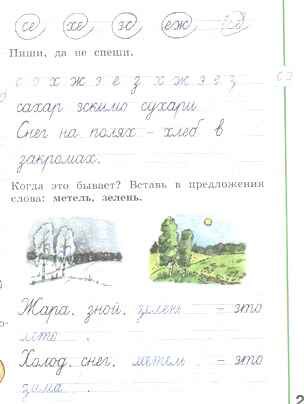 се хе эс еж
Пиши, да не спеши.
с о х ж з е г з х ж э е г з
сахар эскимо сухари
Снег на полях – хлеб в
закромах.
Когда это бывает? Вставь в предложения
слова: метель, зелень.
Жара, зной, зелень – это
лето .
Холод, снег, метель – это
зима .
2